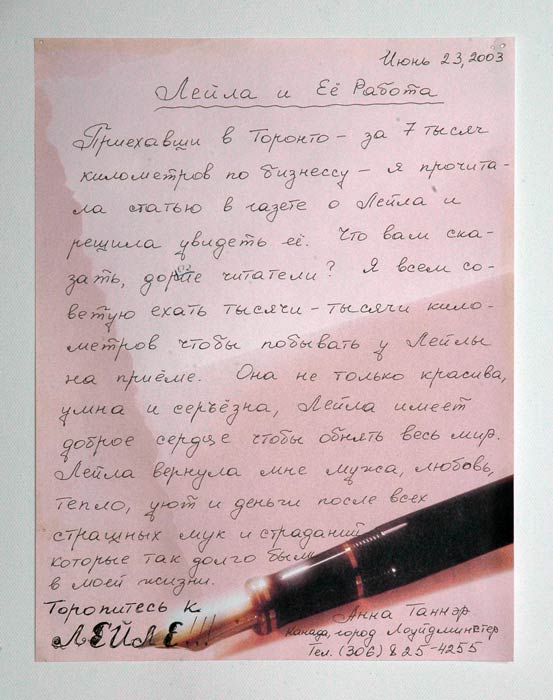 Июнь 23, 2003
Лейла и Её Работа
Приехавши в Торонто – за 7 тысяч
километров по бизнессу – я прочита-
ла статью в газете о Лейла и
решила увидеть её. Что вам ска-
зать, дорогие читатели? Я всем со-
ветую ехать тысячи-тысячи кило-
метров чтобы побывать у Лейлы
на приёме. Она не только красива,
умна и серъёзна, Лейла имеет
доброе сердце чтобы обнять весь мир.
Лейла вернула мне мужа, любовь,
тепло, уют и деньги после всех
страшных мук и страданий
которые так долго были
в моей жизни.
Торопитесь к
ЛЕЙЛЕ!!!
Анна Таннэр
Канада, город Ллуйдминстер
Тел. (306) 825-4255